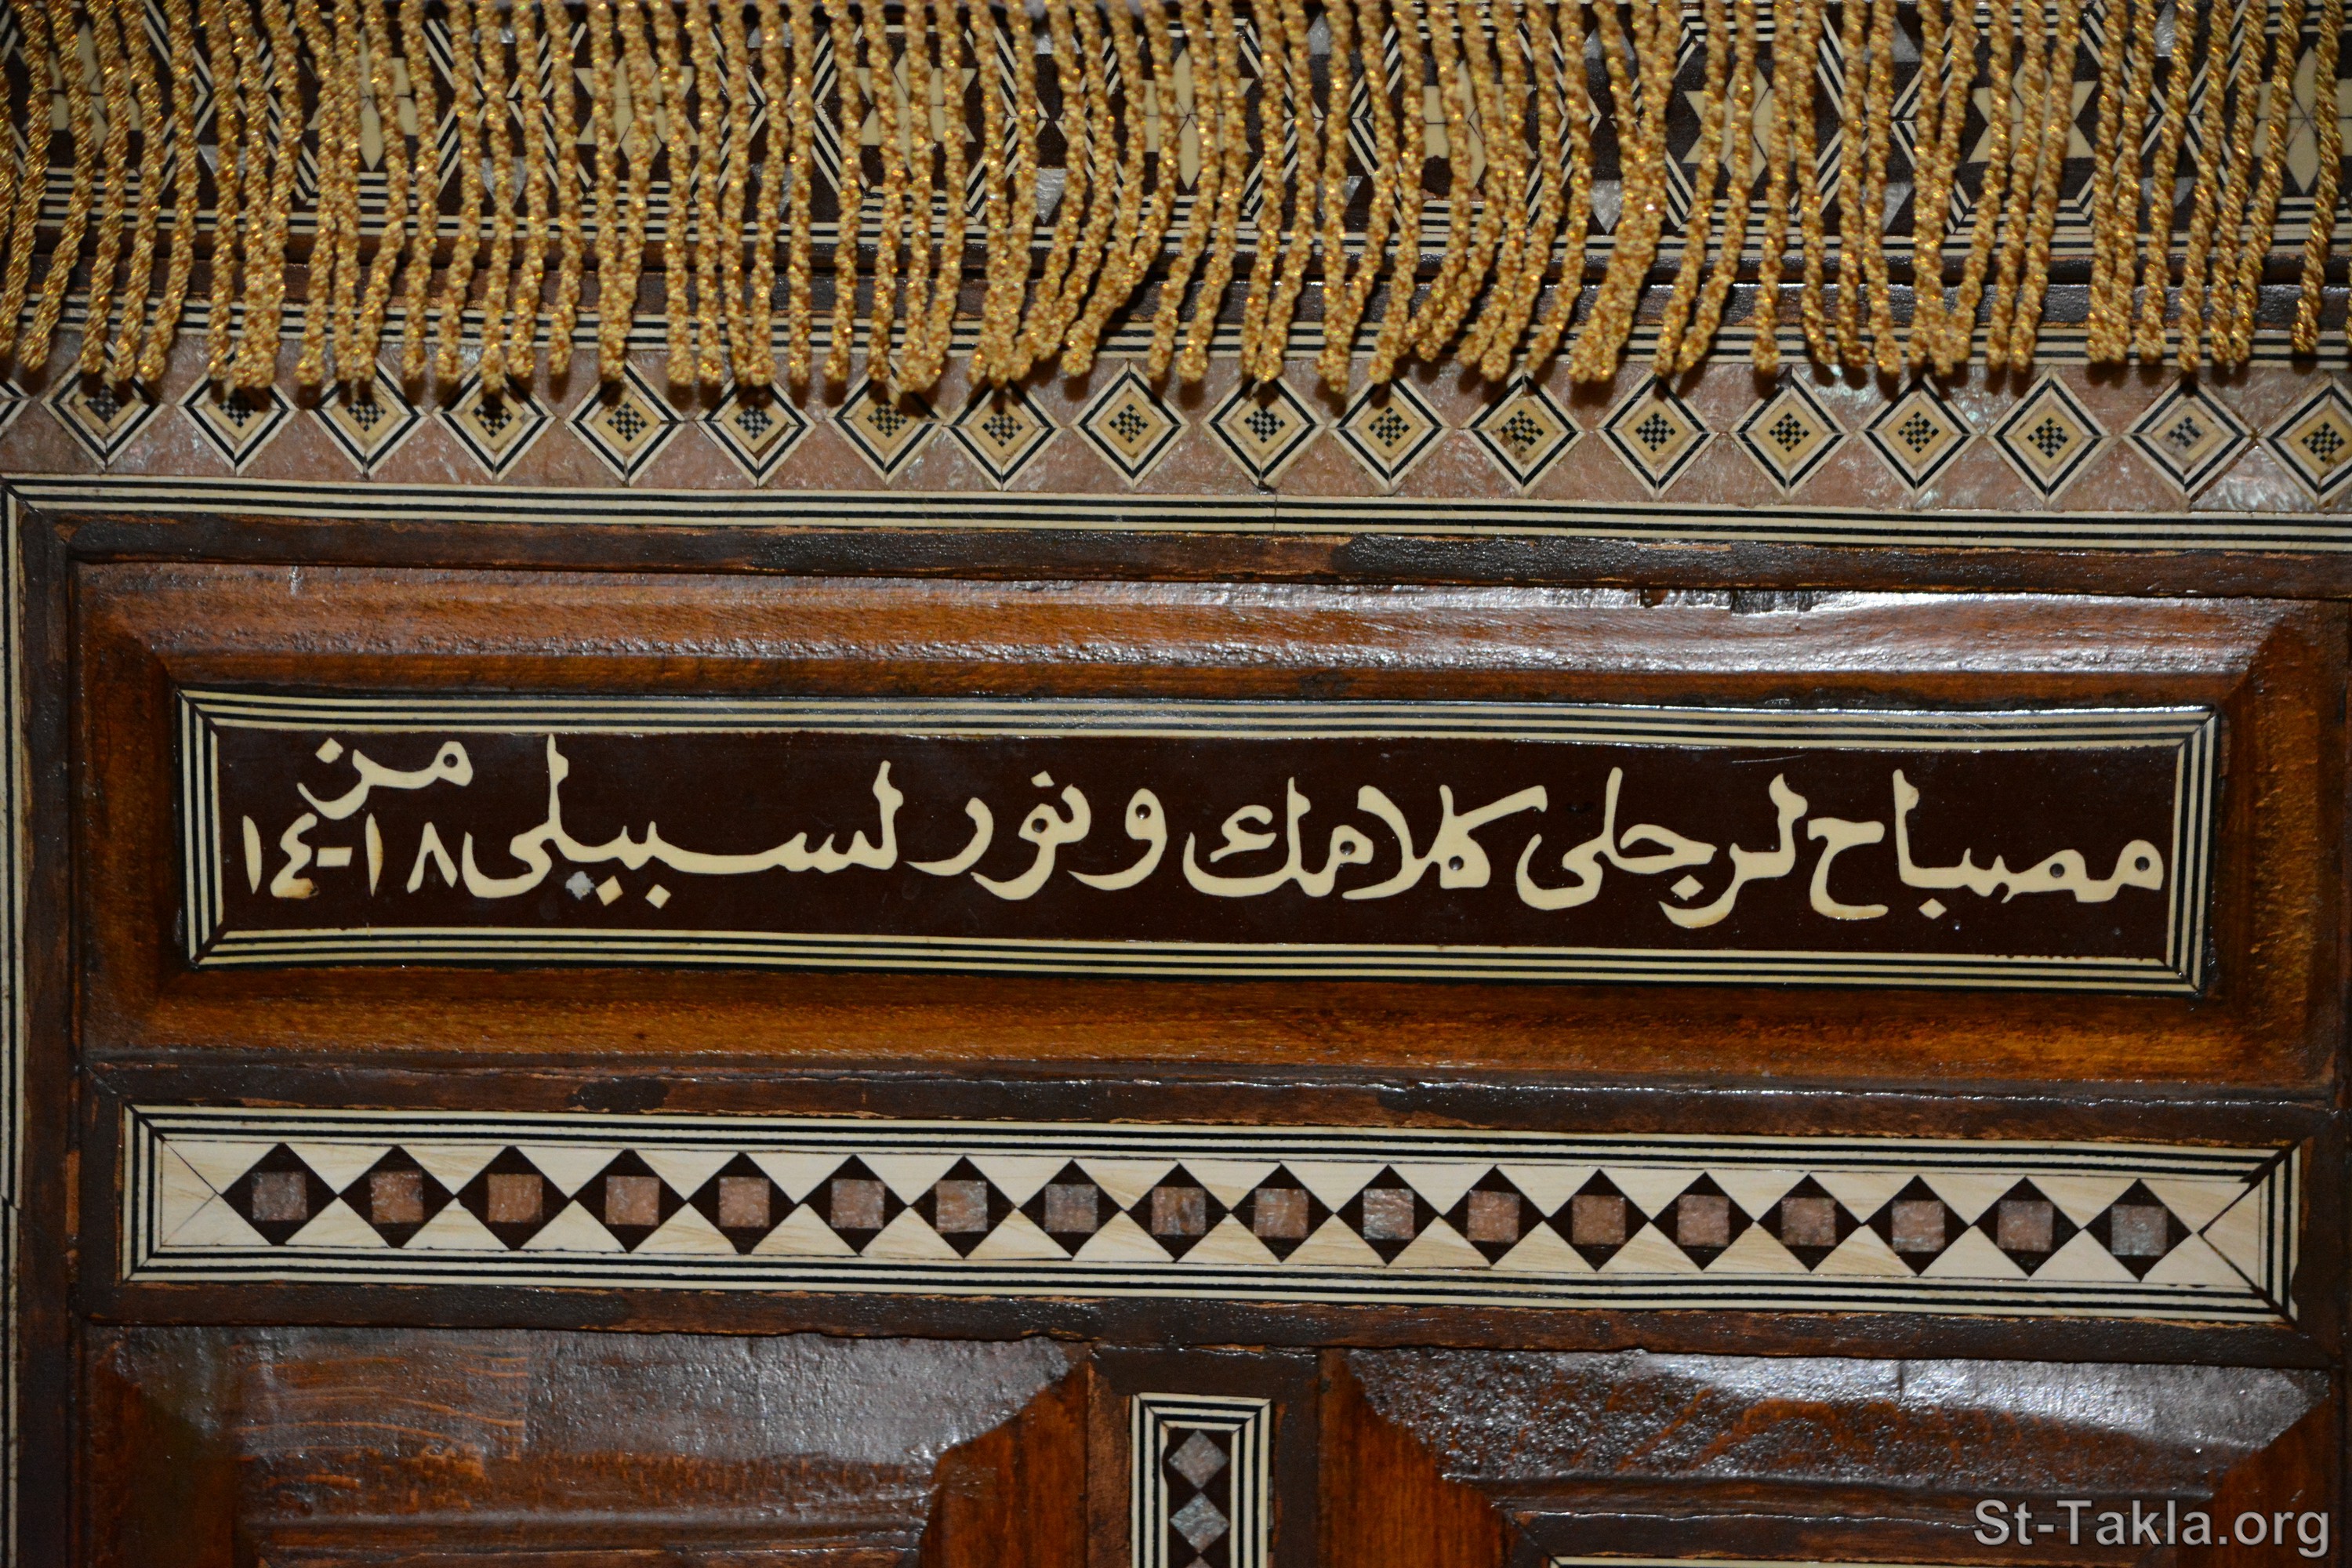 مصباح لرجلى كلامك ونور لسبيلى من ١٤-١٨
St-Takla.org